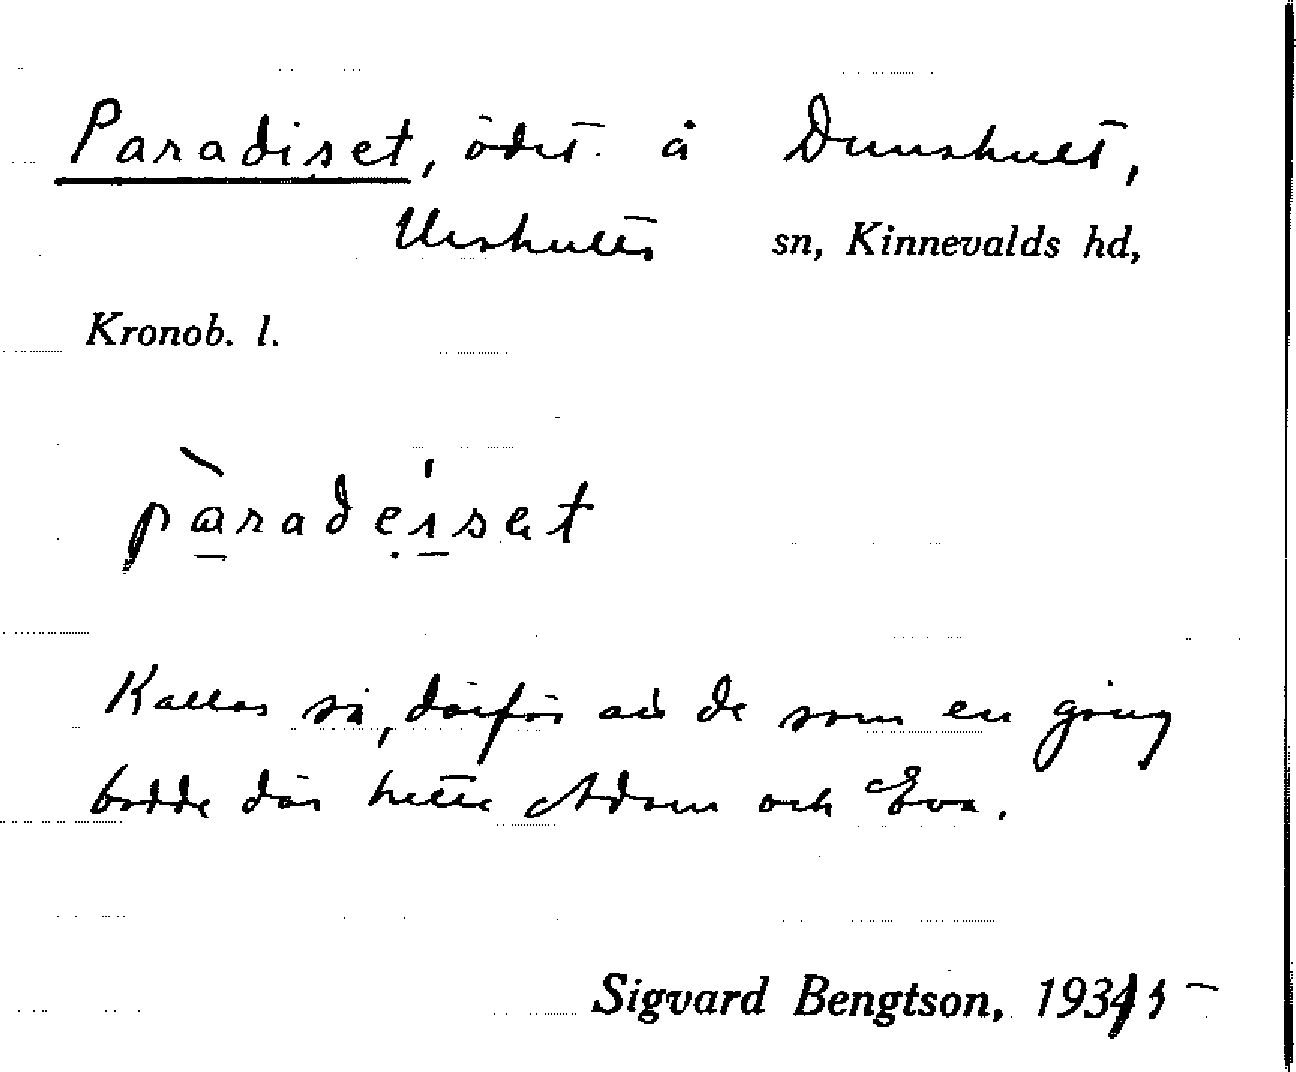 Paradiset, ödet. å Dunshult,
Urshults sn, Kinnevalds hd,
Kronob. l.
pàradeisat
Kallas så, därför att de som en gång
bodde där hette Adam och Eva.
Sigvard Bengtson, 1935